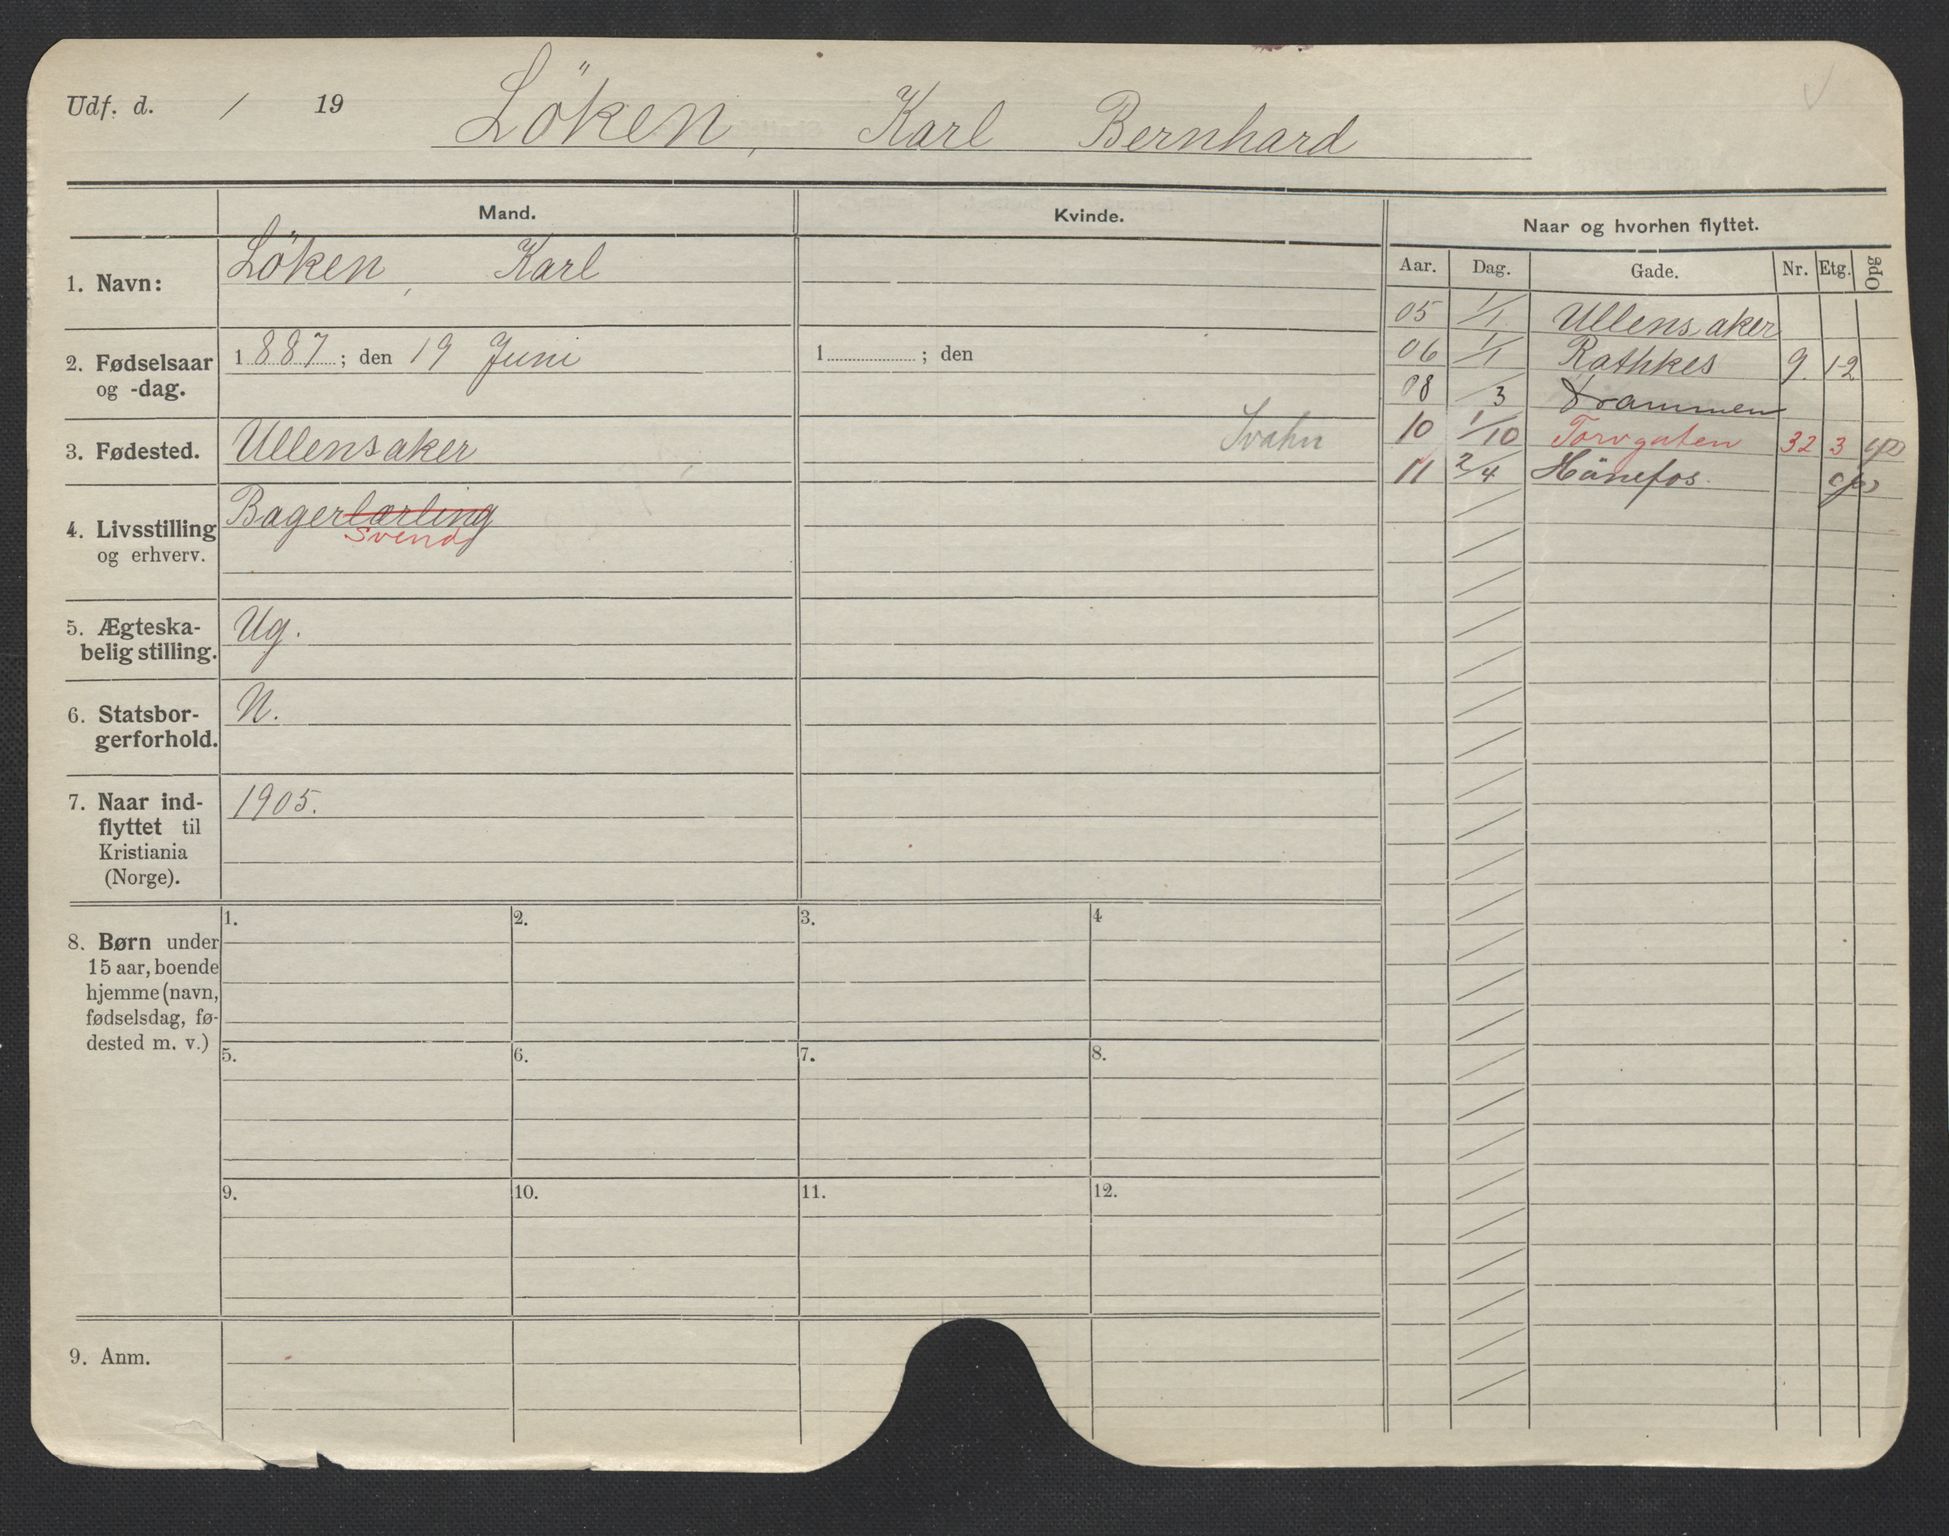 Udf. d. / 19
Löken, Karl Bernhard
Mand.
Kvinde.
Naar og hvorhen flyttet.
Aar. Dag. Gade. Nr. Etg. Opg
1. Navn: Löken, Karl
2. Fødselsaar og -dag. 1887; den 19 Juni
1 ; den
3. Fødested. Ullensaker
Svahn
4. Livsstilling og erhverv. Bagerlærling
Svend
5. Ægteskabelig stilling. Ug.
6. Statsborgerforhold. N.
7. Naar indflyttet til Kristiania (Norge). 1905.
05 1/1 Ullensaker
06 1/1 Rathkes 9. 1-2
08 /3 Drammen
10 1/10 Torvgaten 32 3
11 2/4 Hönefos.
8. Børn under
15 aar, boende
hjemme (navn,
fødselsdag, fø-
dested m. v.)
1. 2. 3. 4
5. 6. 7. 8.
9. 10. 11. 12.
9. Anm.